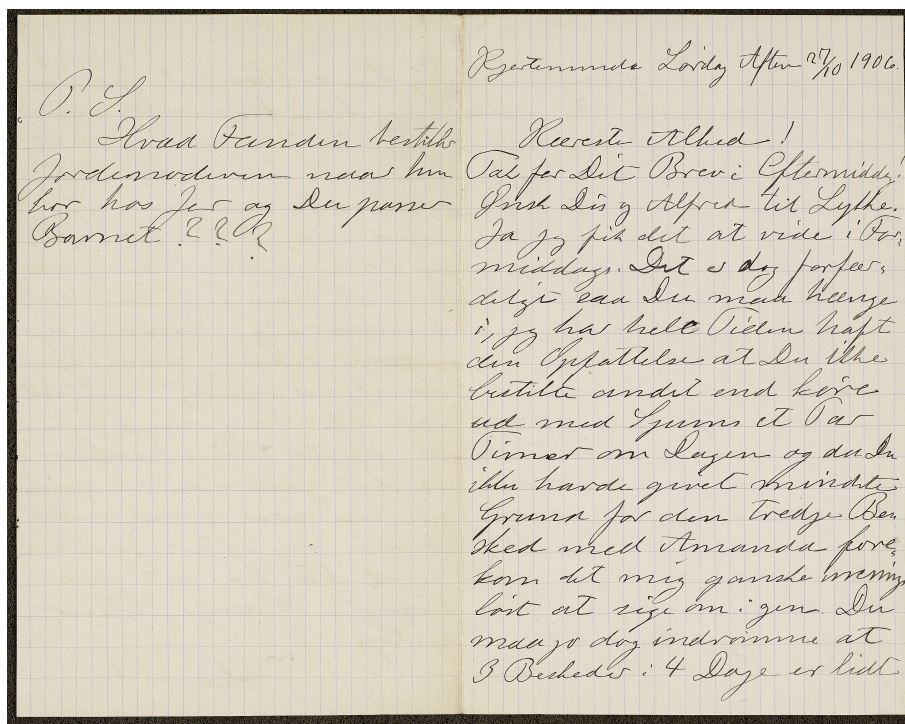 P. S.
Hvad Fanden bestiller
Jordemoderen naar hun
bor hos Jer og Du passer
Barnet ? ? ?
Kjerteminde Lørdag Aften 27/10 1906.
Kæreste Alhed !
Tak for Dit Brev i Eftermiddag!
Ønsk Dis og Alfred til Lykke.
Ja jeg fik det at vide i For-
middags. Det er dog forfær-
deligt saa Du maa hænge
i, jeg har hele Tiden haft
den Opfattelse at Du ikke
bestilte andet end køre
ud med Spums et Par
Timer om Dagen og da Du
ikke havde givet mindste
Grund for den tredje Be-
sked med Amanda fore-
kom det mig ganske menings-
løst at sige om igen. Du
maa jo dog indrømme at
3 Beskeder i 4 Dage er lidt